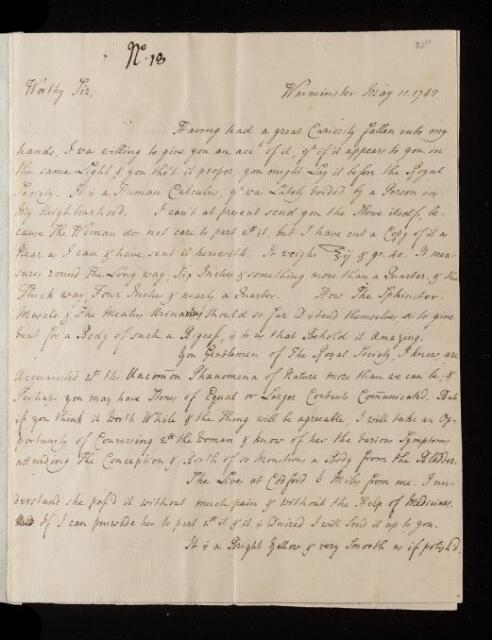 No. 18
Worthy Sir,
Warminster May 11. 1743
Having had a great Curiosity fallen into my
hands, I was willing to give you an acct. of it, yt if it appears to you in
the same Light & you tho't it proper, you might Lay it before the Royal
Society. It is a Human Calculus, yt was Lately voided by a Person in
My Neighbourhood. I can't at present send you the Stone itself, be-
cause The Woman does not care to part wth it, but I have cut a Copy of it as
Near as I can & have sent it herewith. It weighs ℥ij & gr. 40. It mea-
sures round The Long way, Six Inches & something more than a Quarter, & the
Thick way Four Inches & nearly a Quarter. How The Sphincter
Muscle & The Meatus Urinarius should so far Distend themselves as to give
Vent for a Body of such a Bigness, is to us that Behold it Amazing.
You Gentlemen of The Royal Society, I know, are
Acquainted wth the Uncom̄on Phænomena of Nature more than we can be; &
Perhaps you may have Stones of Equal or Larger Contents Com̄unicated. But
if you think it Worth While & the Thing will be agreeable, I will take an Op-
portunity of Conversing wth the Woman & know of her the various Symptoms
attending The Conception & Birth of so Monstrous a Body from the Bladder.
She Lives at Codford 6 Miles from me. I un-
derstand she pass'd it without much pain & without the Help of Medicines.
If I can perswade her to part wth it & it is Desired I will Send it up to you.
It is a Bright Yellow & very Smooth as if polish'd.